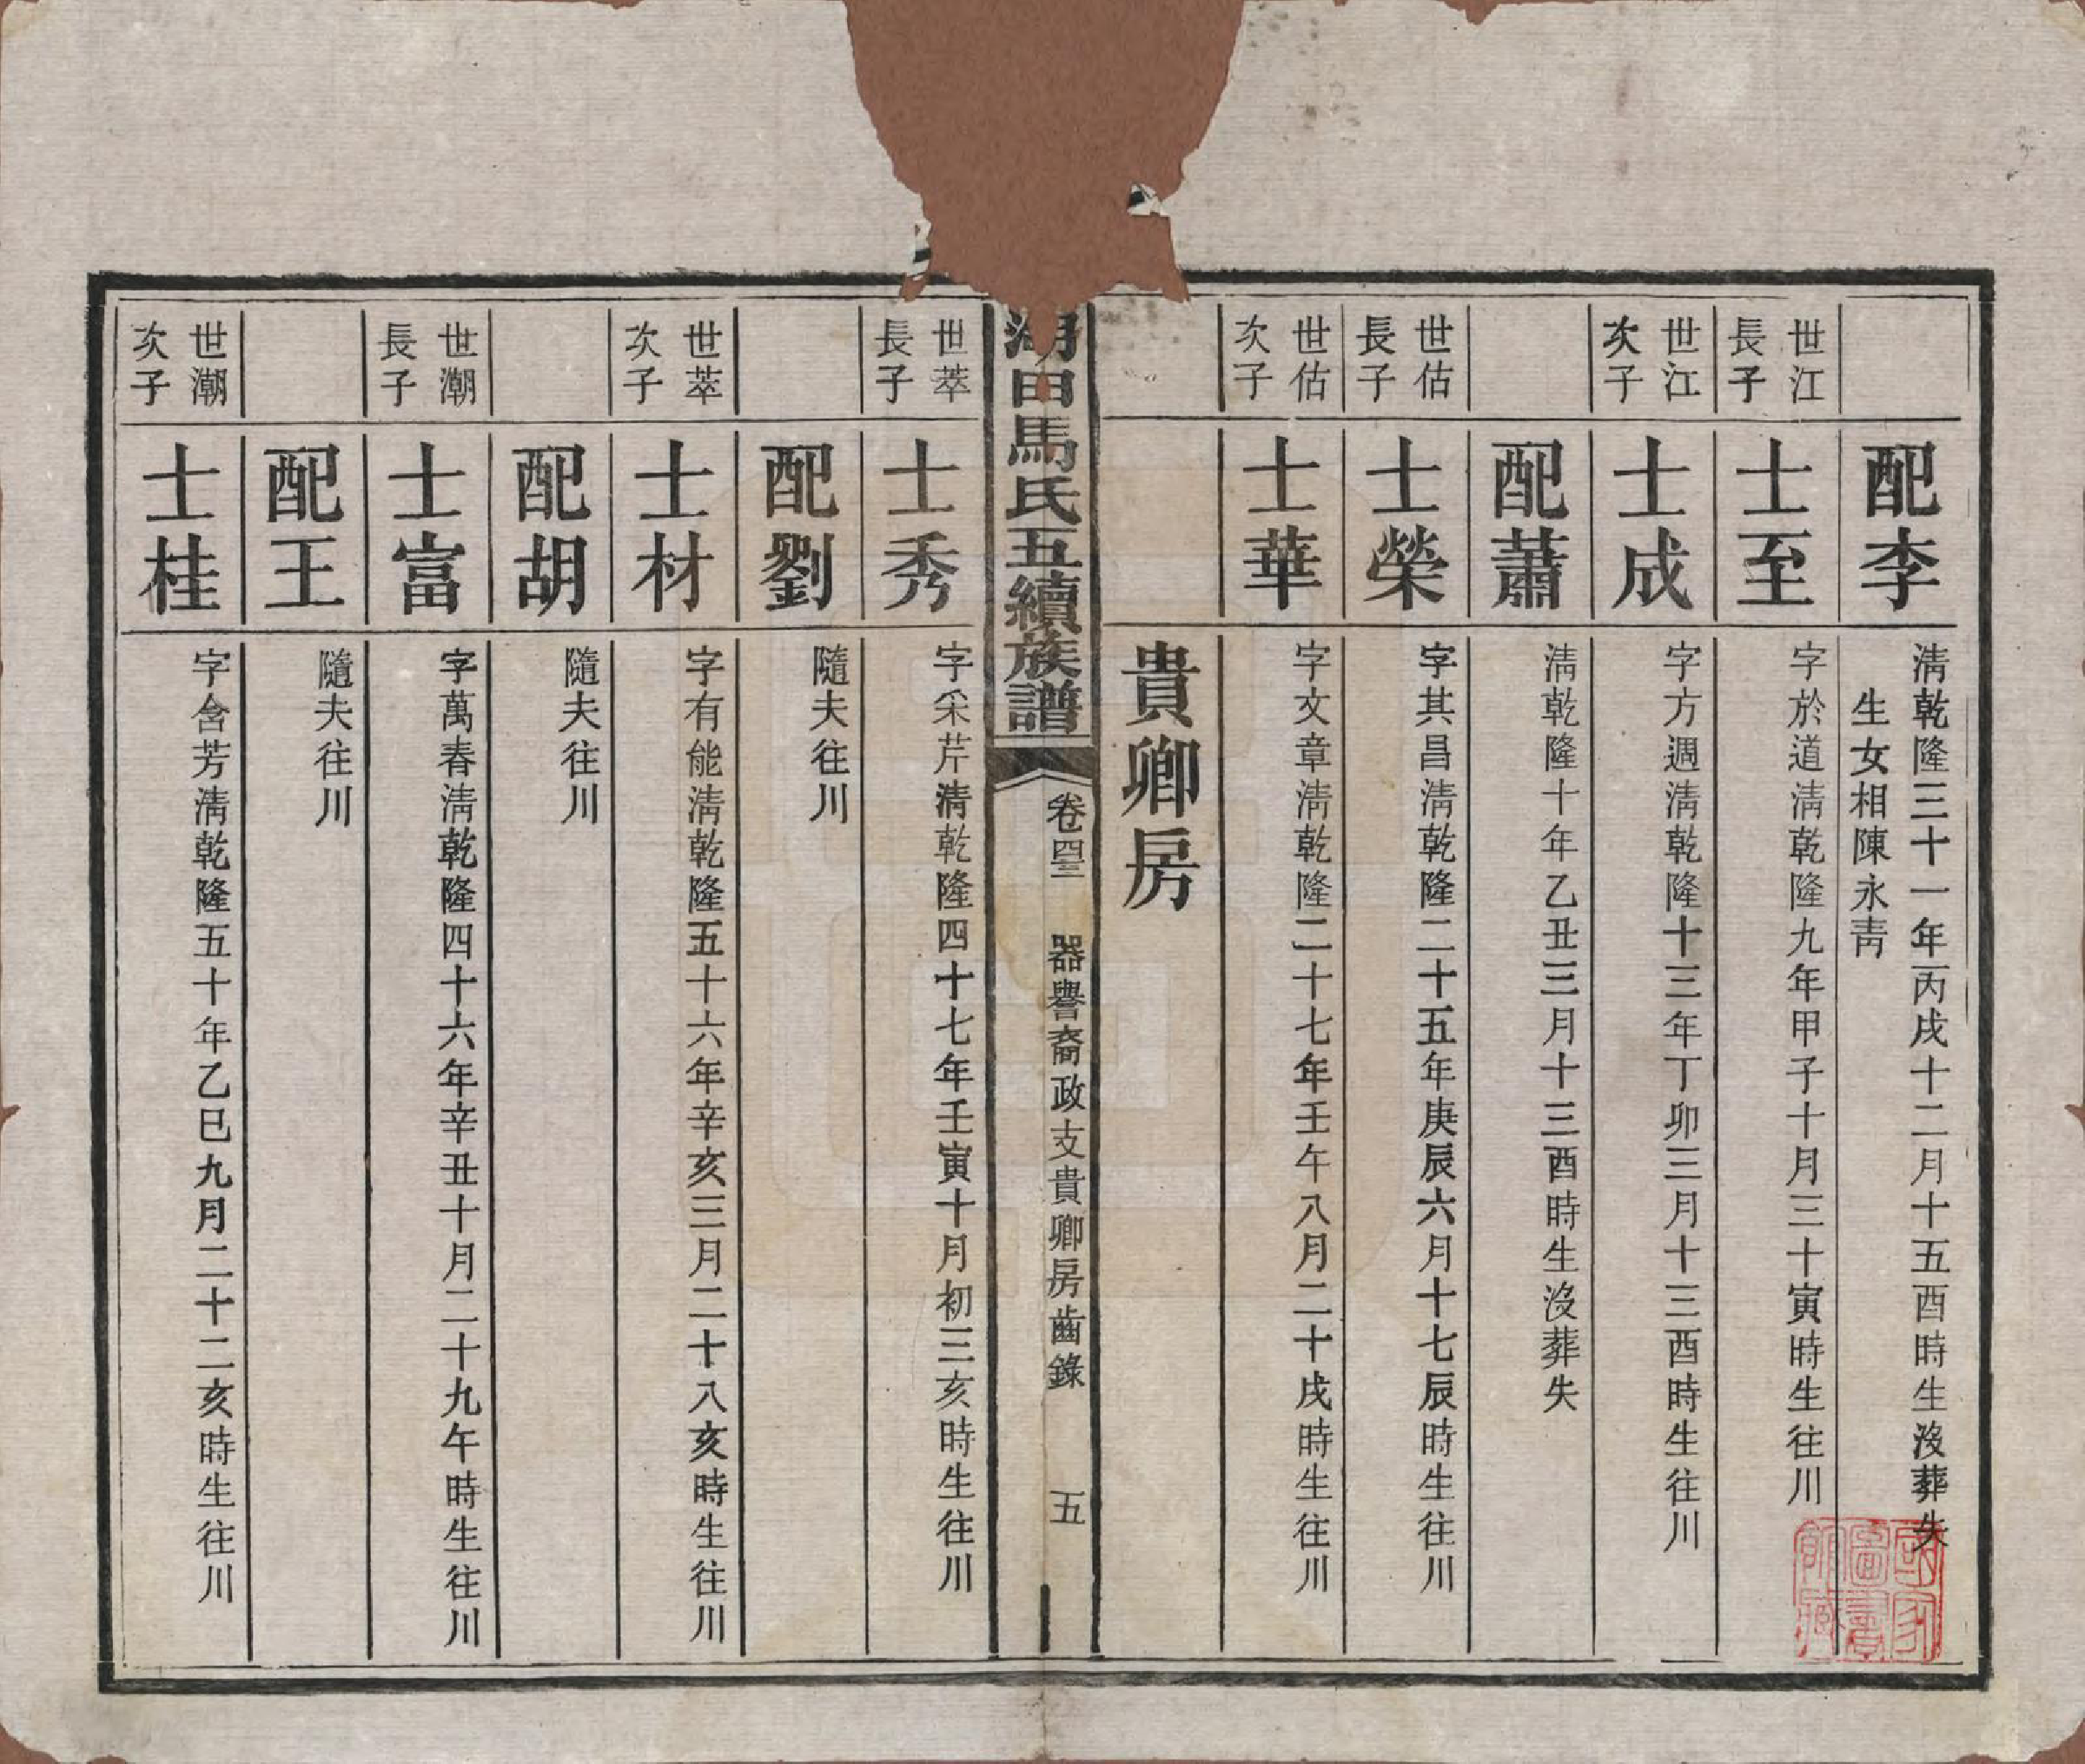 配李
清乾隆三十一年丙戌十二月十五酉時生沒葬失
生女相陳永青
世江
長子
士至
字於道清乾隆九年甲子十月三十寅時生往川
世江
次子
士成
字方週清乾隆十三年丁卯三月十三酉時生往川
配蕭
清乾隆十年乙丑三月十三酉時生沒葬失
世估
長子
士榮
字其昌清乾隆二十五年庚辰六月十七辰時生往川
世估
次子
士華
字文章清乾隆二十七年壬午八月二十戌時生往川
貴卿房
湖田馬氏五續族譜
卷四三
器譽裔政支貴卿房齒錄
五
世萃
長子
士秀
字采芹清乾隆四十七年壬寅十月初三亥時生往川
配劉
隨夫往川
世萃
次子
士材
字有能清乾隆五十六年辛亥三月二十八亥時生往川
配胡
隨夫往川
世潮
長子
士富
字萬春清乾隆四十六年辛丑十月二十九午時生往川
配王
隨夫往川
世潮
次子
士桂
字含芳清乾隆五十年乙巳九月二十二亥時生往川
國家
圖書
館藏